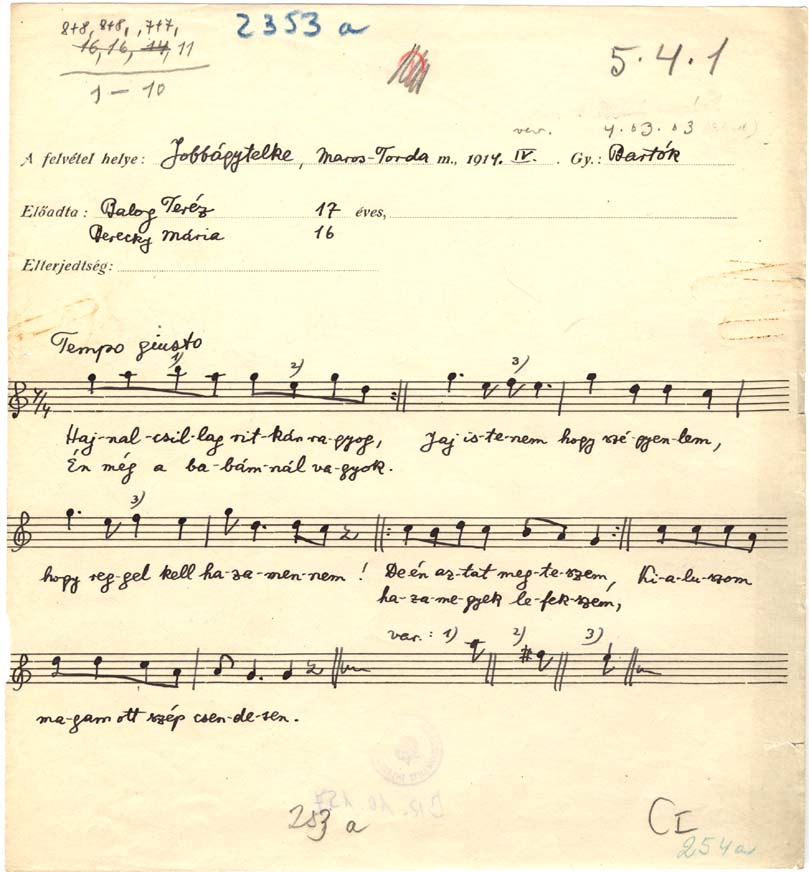 8+8, 8+8, , 7+7,
16, 16, 14, 11
1 – 10
2353 a
5.4.1
var.
A felvétel helye: Jobbágytelke, Maros-Torda m., 1914. IV. Gy.: Bartók
Előadta: Balog Teréz 17 éves,
Berecky Mária 16
Elterjedtség:
Tempo giusto
1) 2) 3)
4/4
Haj-nal-csil-lag rit-kán ra-gyog, Jaj is-te-nem hogy szé-gyen-lem,
Én még a ba-bám-nál va-gyok.
3)
hogy reg-gel kell ha-za-men-nem! De én az-tat meg-te-szem, Ki-a-lu-szom
ha-za me-gyek le-fek-szem,
var.: 1) 2) 3)
ma-gam ott szép csen-de-sen.
253 a
CI
254a